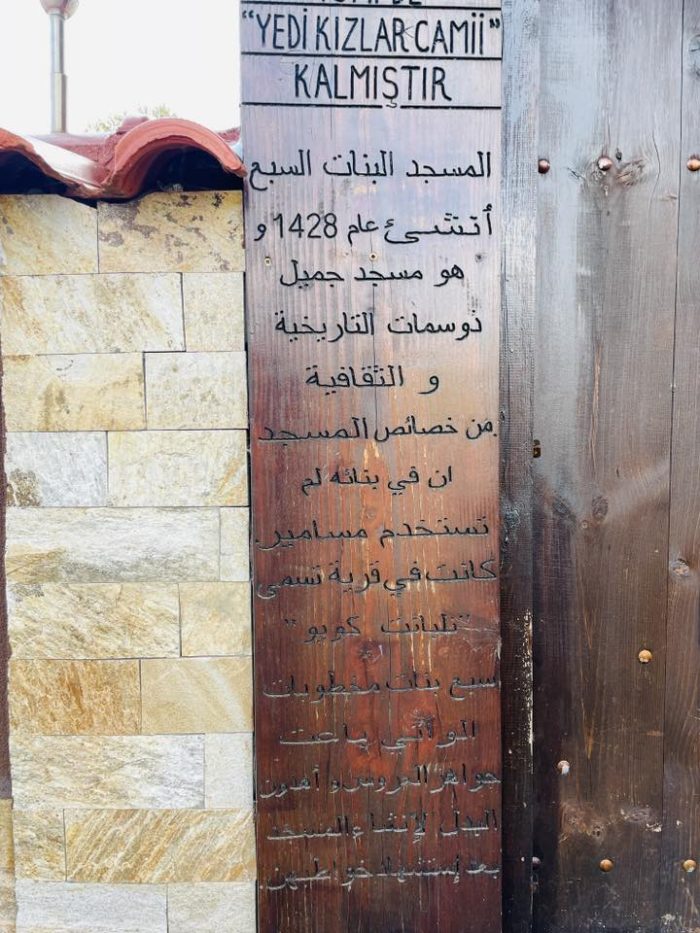 “YEDİ KIZLAR CAMİİ”
KALMIŞTIR
المسجد البنات السبع
أنشئ عام 1428 و
هو مسجد جميل
ذوسمات التاريخية
و الثقافية
من خصائص المسجد
ان في بنائه لم
تستخدم مسامير.
كانت في قرية تسمى
كويو”
سبع بنات مخطوبات
الواتي باعت
جواهر العروس و أهدون
البدل لإنشاء المسجد
بعد إستشهاد خواطبهن.